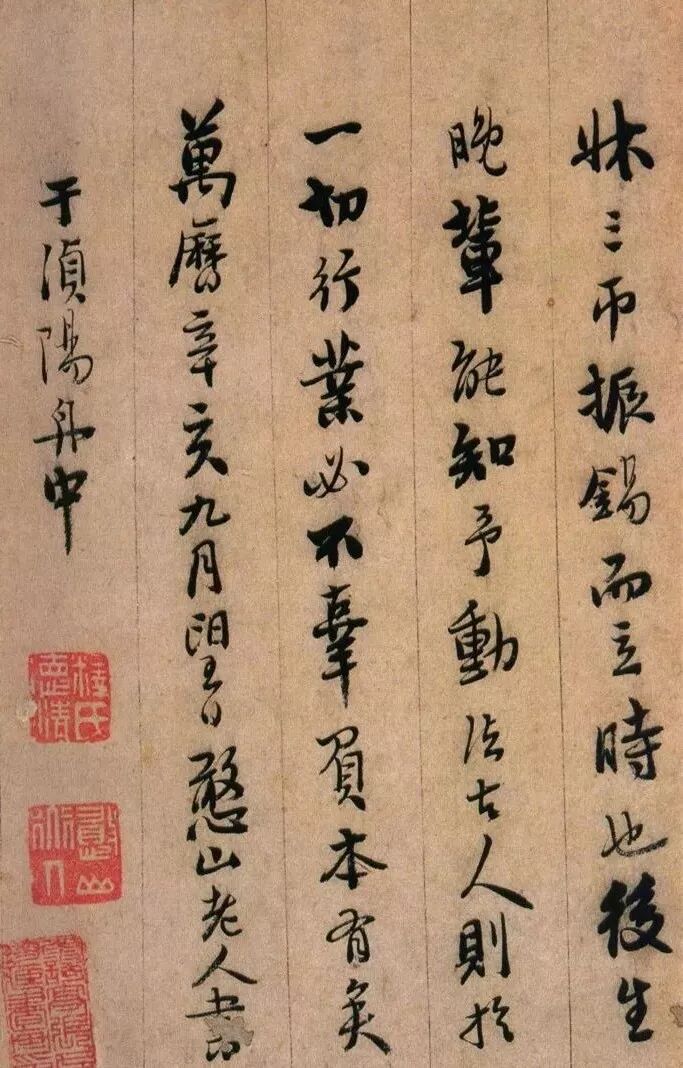 牀三帀振錫而立時也後生
晚輩能知予動法古人則於
一切行業必不辜負本有矣
萬曆辛亥九月朢日憨山老人書
于湞陽舟中